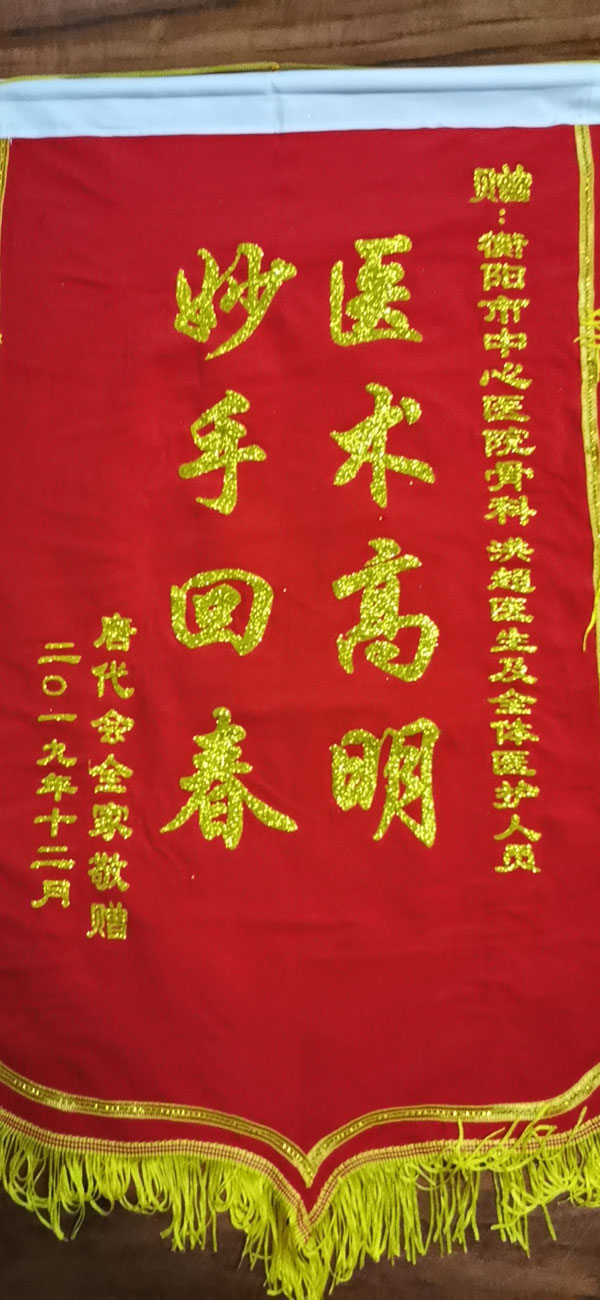 赠:衡阳市中心医院骨科 洪超医生及全体医护人员
医术高明
妙手回春
唐代会全家敬赠
二〇一九年十二月